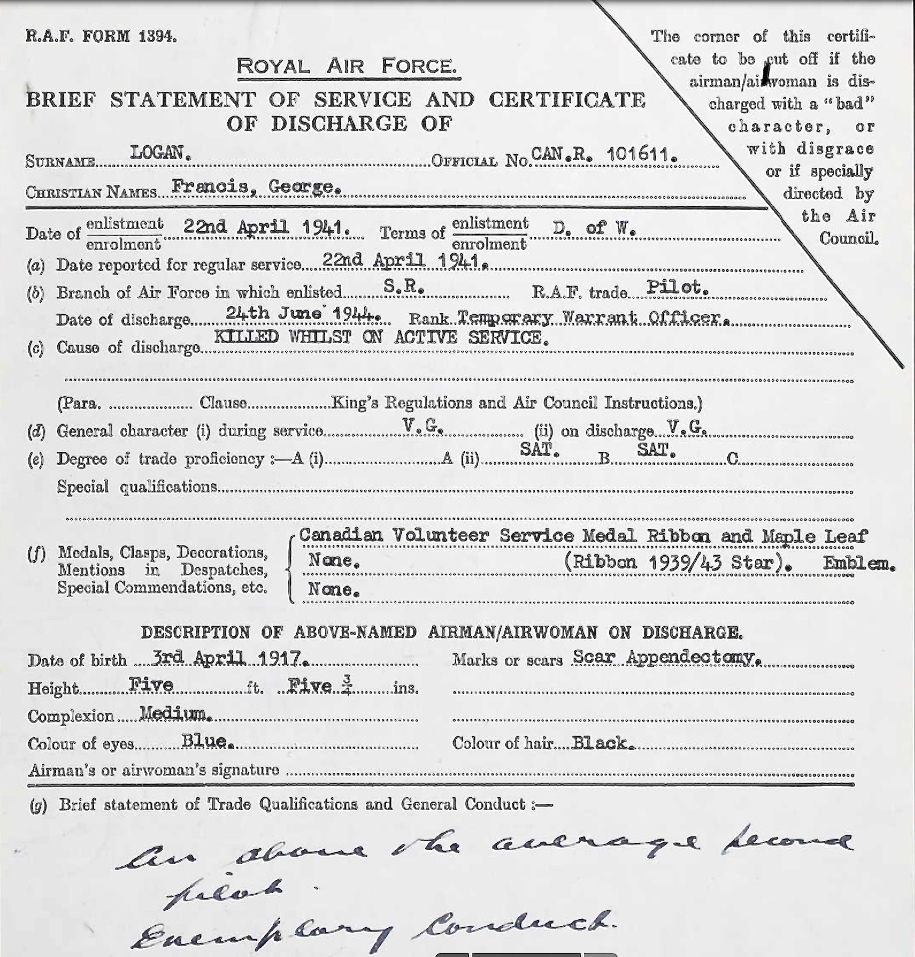 R.A.F. FORM 1394.
The corner of this certifi-
cate to be cut off if the
airman/airwoman is dis-
charged with a "bad"
character, or
with disgrace
or if specially
directed by
the Air
Council.
ROYAL AIR FORCE.
BRIEF STATEMENT OF SERVICE AND CERTIFICATE
OF DISCHARGE OF
SURNAME LOGAN. OFFICIAL No. CAN.R. 101611.
CHRISTIAN NAMES Francis, George.
Date of enlistment/enrolment 22nd April 1941. Terms of enlistment/enrolment D. of W.
(a) Date reported for regular service 22nd April 1941.
(b) Branch of Air Force in which enlisted S.R. R.A.F. trade Pilot.
Date of discharge 24th June 1944. Rank Temporary Warrant Officer.
(c) Cause of discharge KILLED WHILST ON ACTIVE SERVICE.
(Para. Clause King's Regulations and Air Council Instructions.)
(d) General character (i) during service V.G. (ii) on discharge V.G.
(e) Degree of trade proficiency :—A (i) A (ii) SAT. B SAT. C
Special qualifications
(f) Medals, Clasps, Decorations,
Mentions in Despatches,
Special Commendations, etc.
Canadian Volunteer Service Medal Ribbon and Maple Leaf
None. (Ribbon 1939/43 Star). Emblem.
None.
DESCRIPTION OF ABOVE-NAMED AIRMAN/AIRWOMAN ON DISCHARGE.
Date of birth 3rd April 1917. Marks or scars Scar Appendectomy.
Height Five ft. Five ¾ ins.
Complexion Medium.
Colour of eyes Blue. Colour of hair Black.
Airman's or airwoman's signature
(g) Brief statement of Trade Qualifications and General Conduct :—
An above the average second
pilot.
Exemplary Conduct.